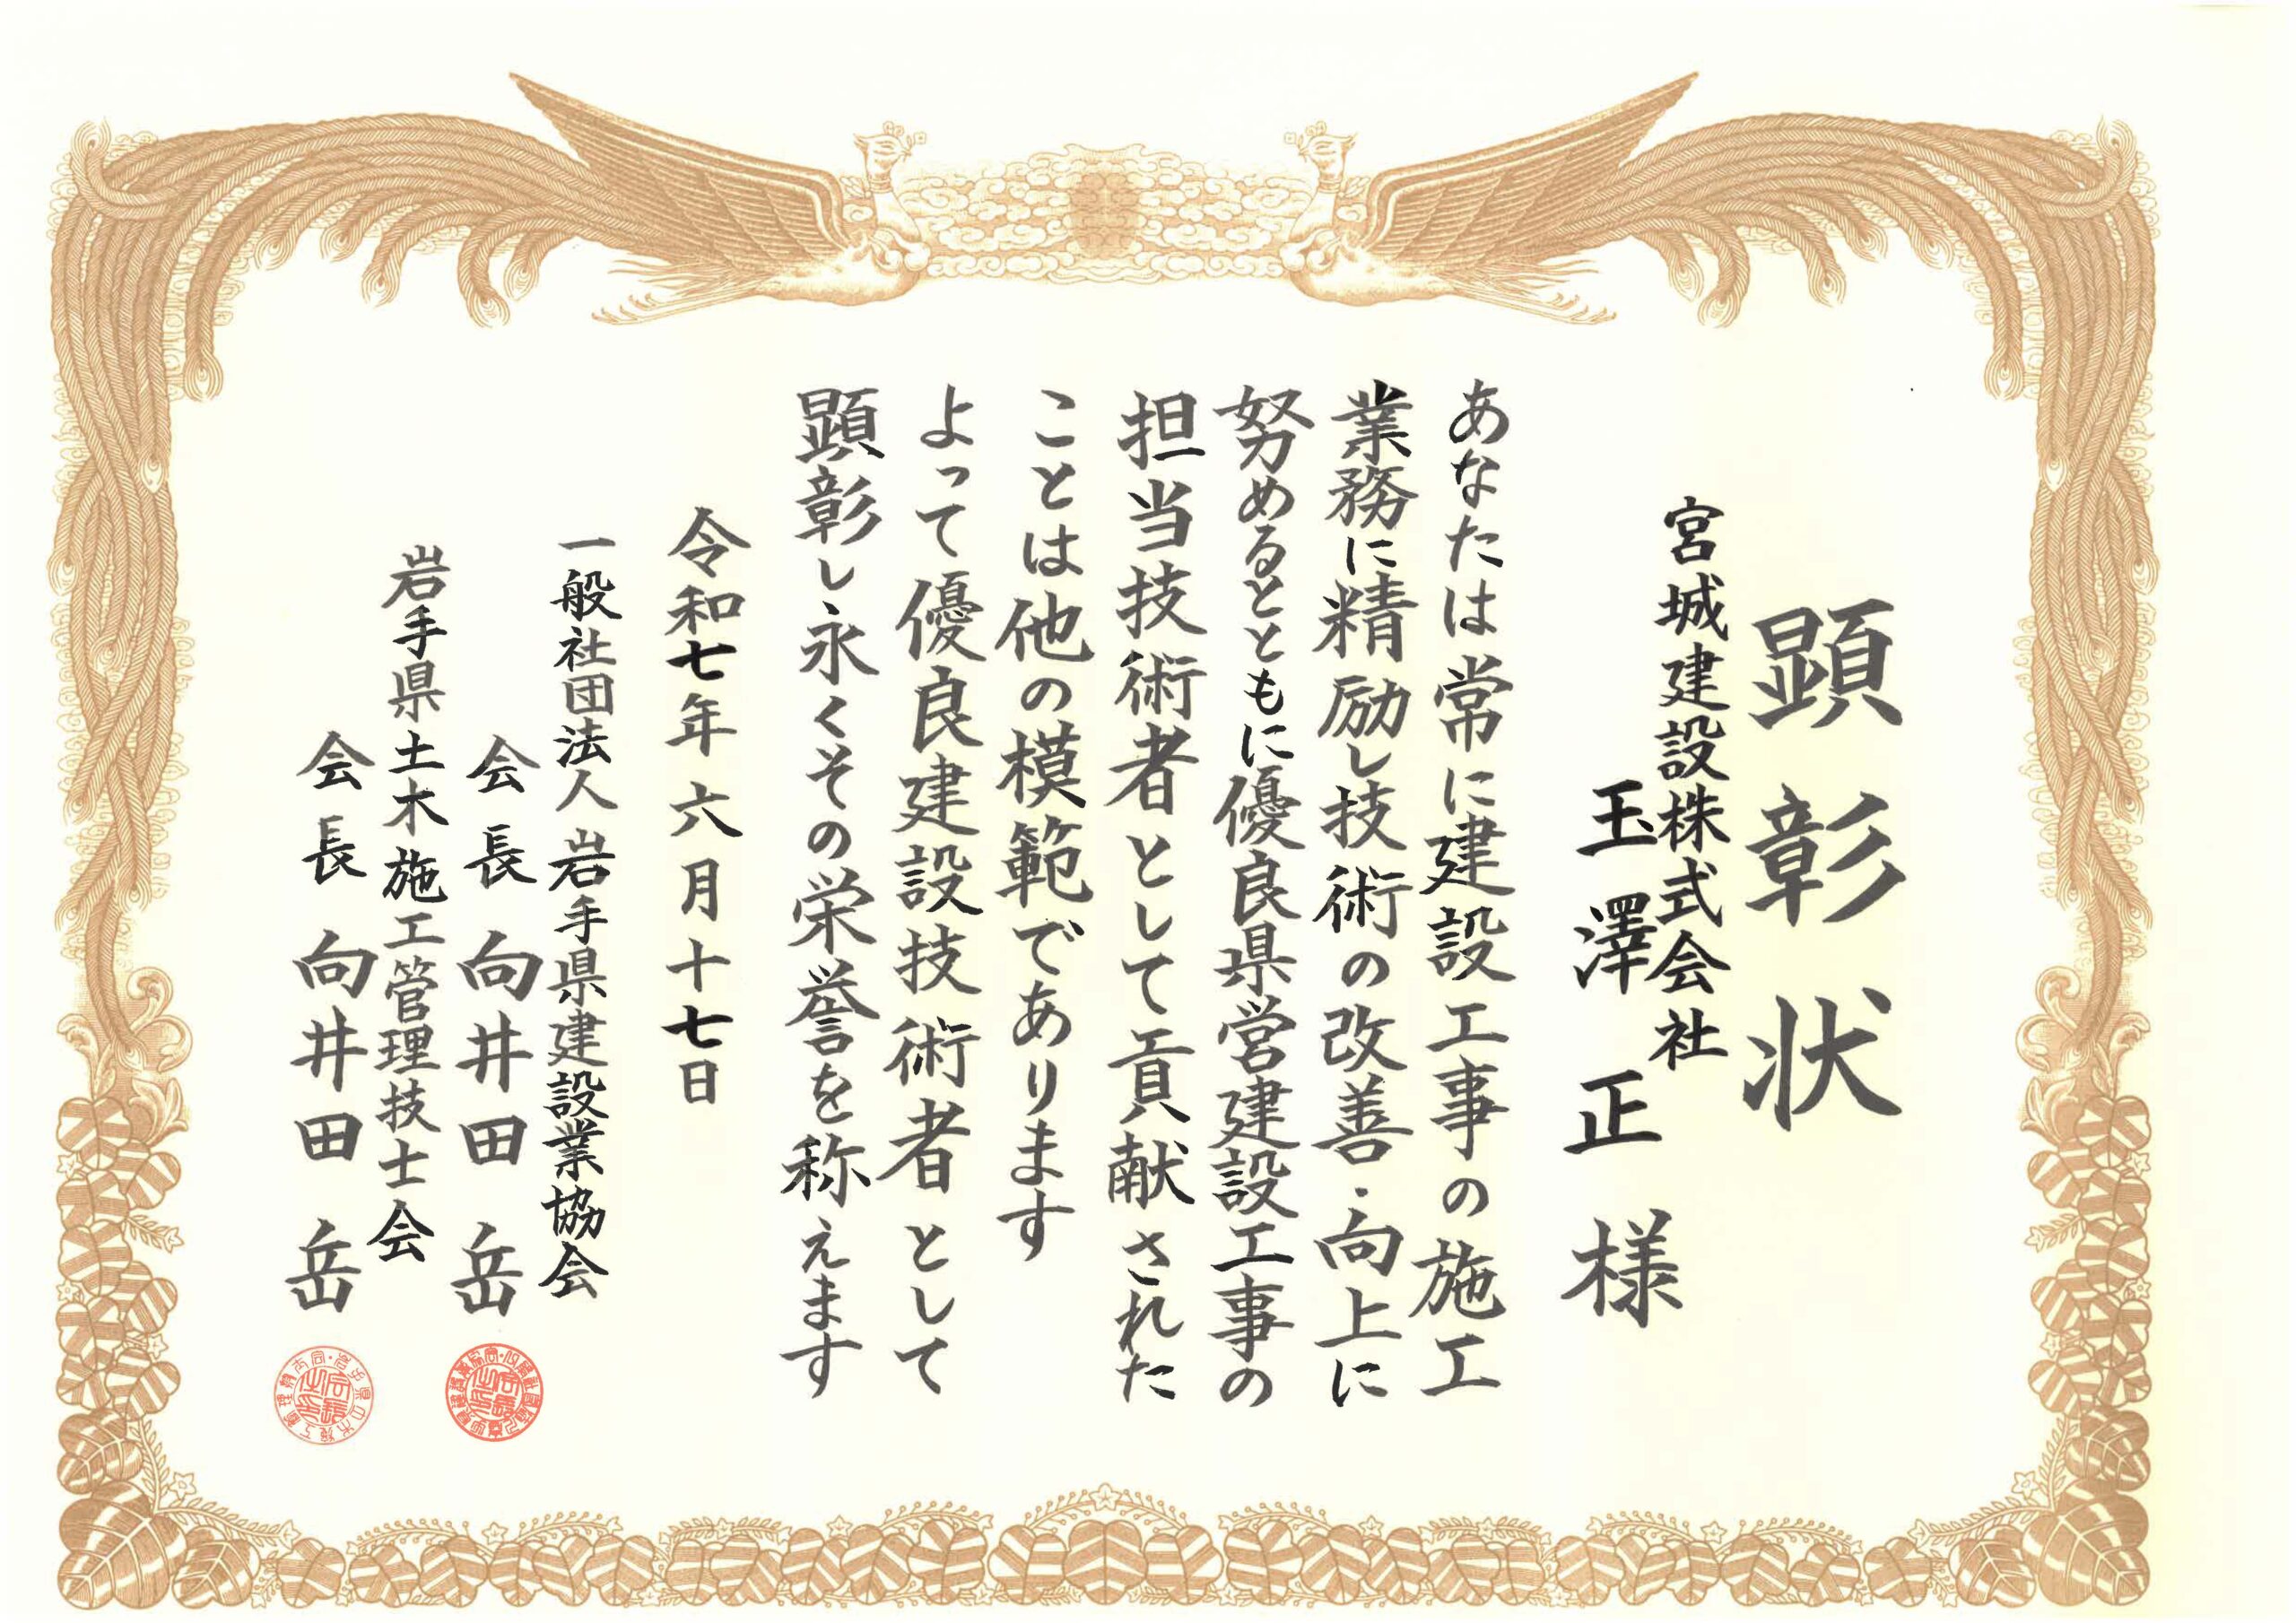 顕彰状
宮城建設株式会社
玉澤正様
あなたは常に建設工事の施工
業務に精励し技術の改善・向上に
努めるとともに優良県営建設工事の
担当技術者として貢献された
ことは他の模範であります
よって優良建設技術者として
顕彰し永くその栄誉を称えます
令和七年六月十七日
一般社団法人岩手県建設業協会
会長向井田岳
岩手県土木施工管理技士会
会長向井田岳